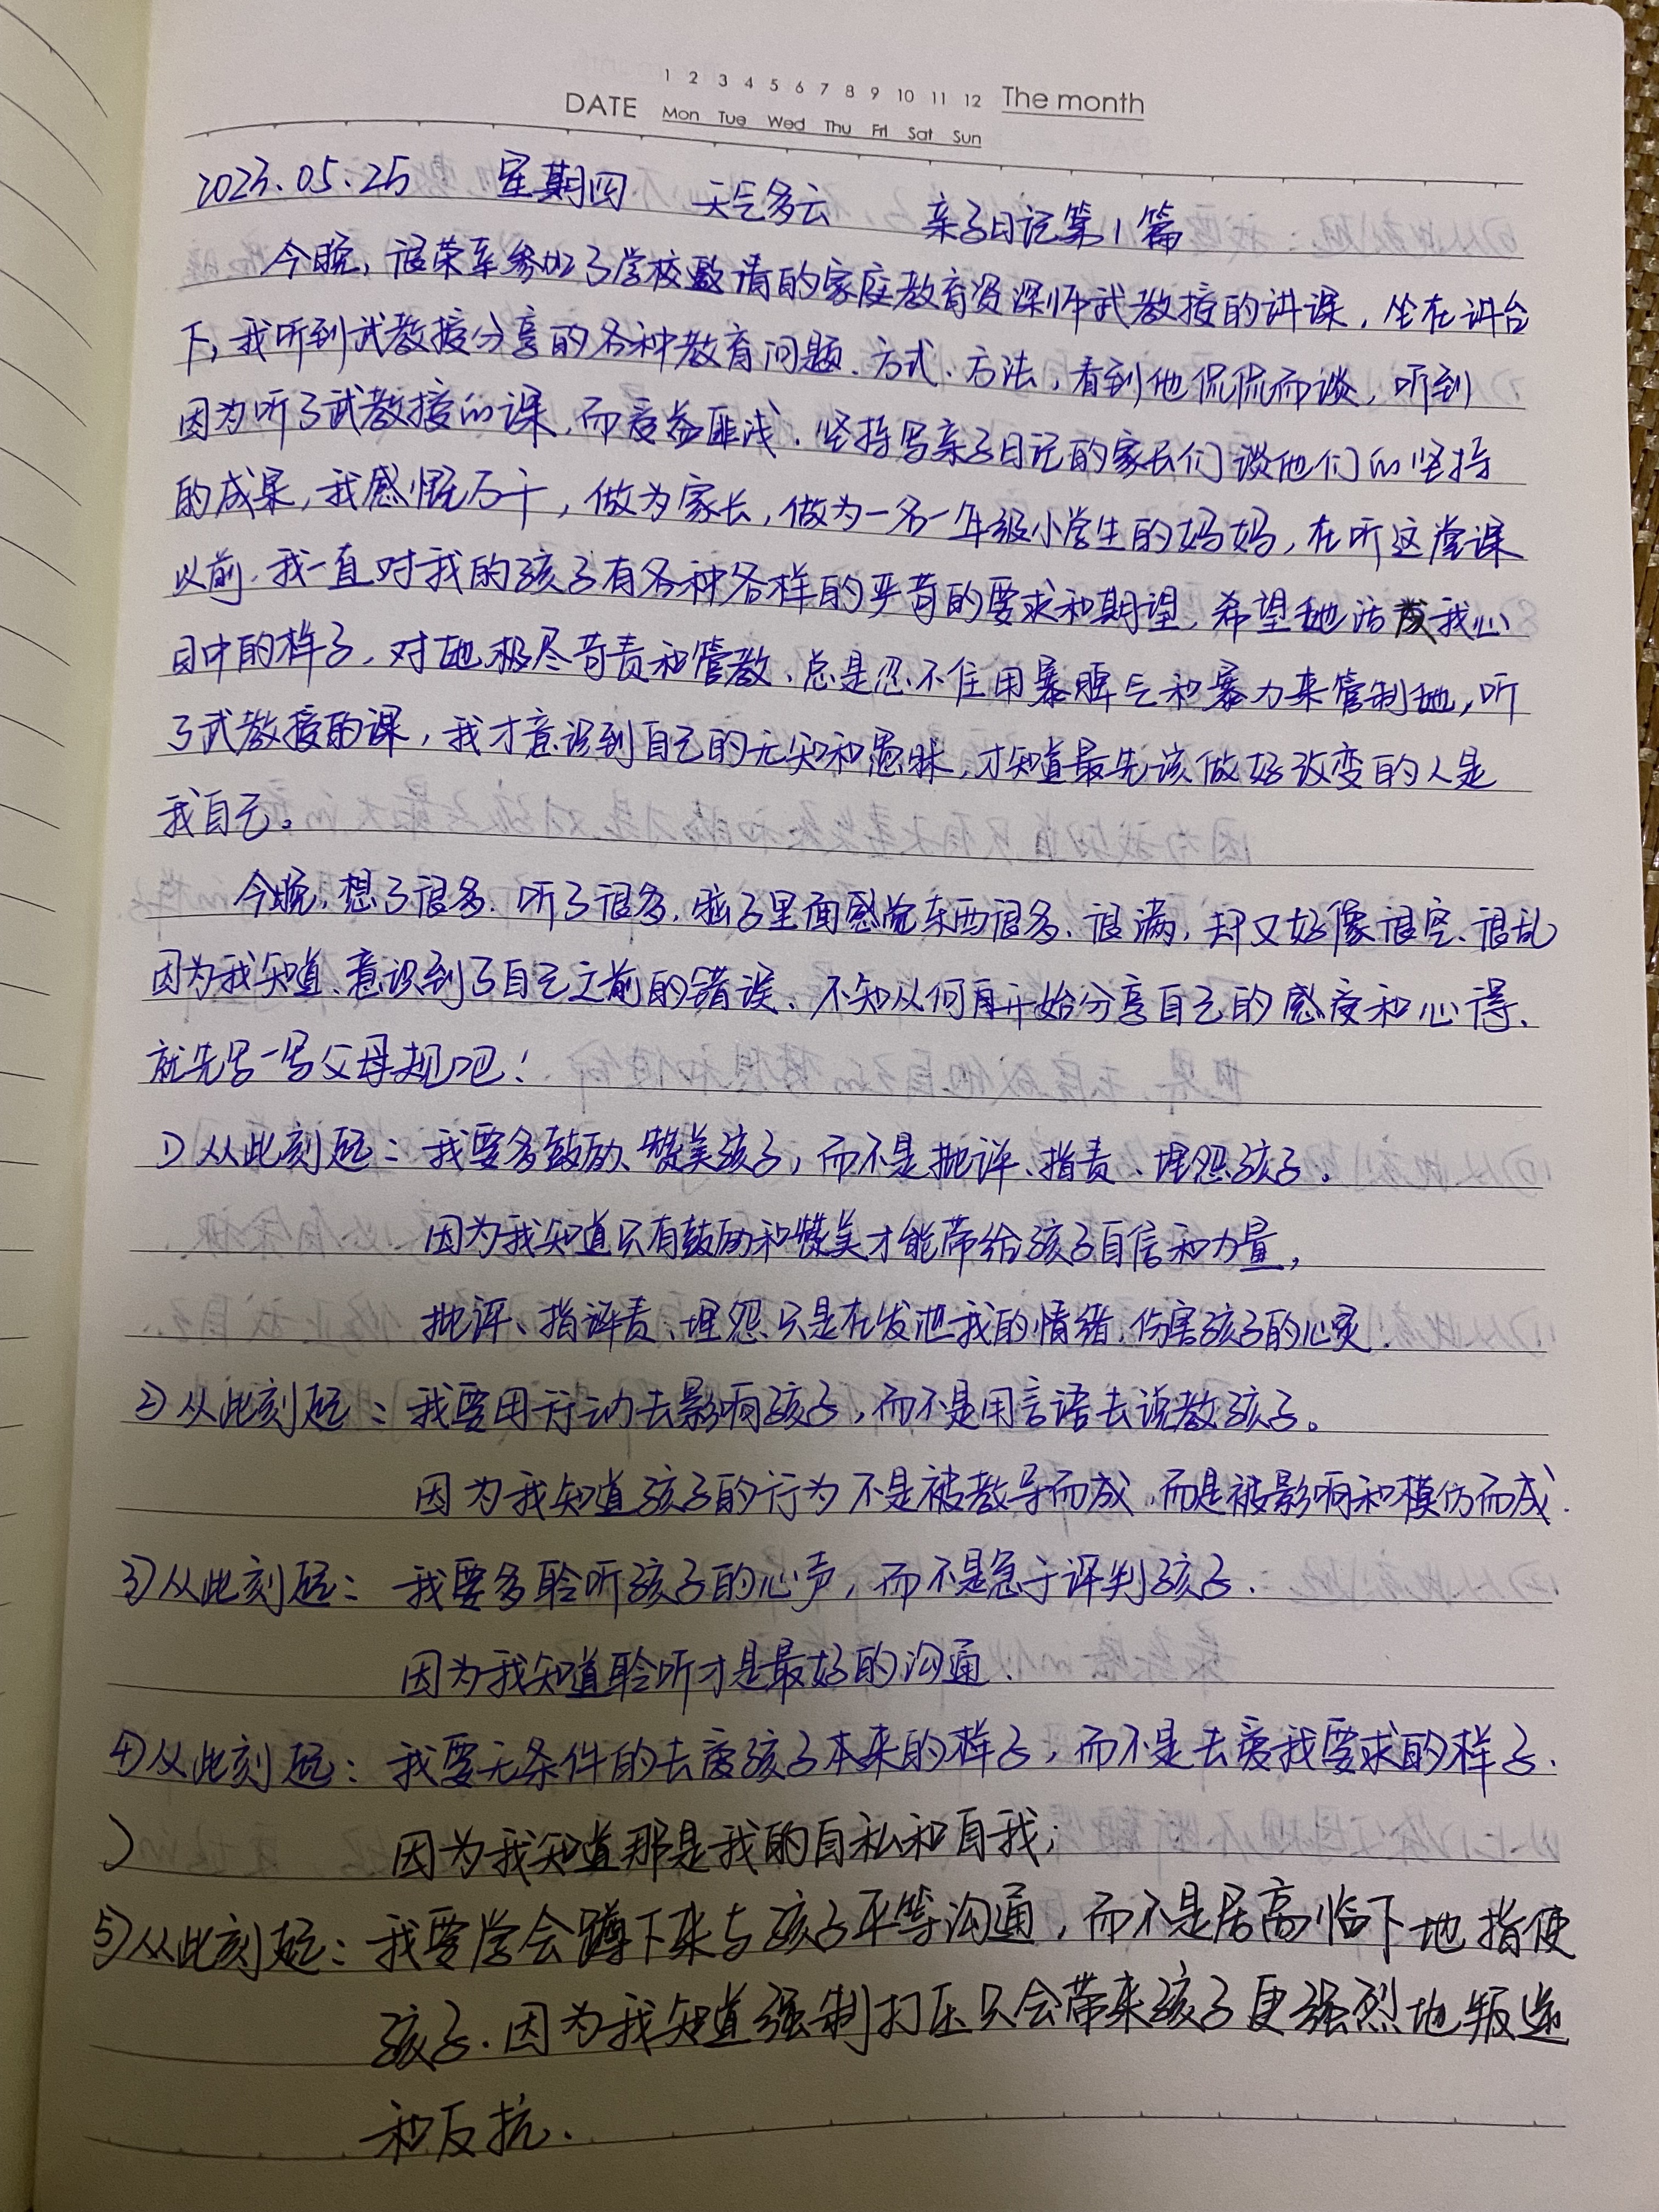 1 2 3 4 5 6 7 8 9 10 11 12 The month
DATE Mon Tue Wed Thu Fri Sat Sun
2023.05.25 星期四 天气多云 亲子日记第1篇
今晚，很荣幸参加了学校邀请的家庭教育资深师武教授的讲课，坐在讲台
下，我听到武教授分享的各种教育问题、方式、方法，看到他侃侃而谈，听到
因为听了武教授的课，而受益匪浅、坚持写亲子日记的家长们谈他们的坚持
的成果，我感慨万千，做为家长，做为一名一年级小学生的妈妈，在听这堂课
以前，我一直对我的孩子有各种各样的严苛的要求和期望，希望她活成我心
目中的样子，对她极尽苛责和管教、总是忍不住用暴脾气和暴力来管制她，听
了武教授的课，我才意识到自己的无知和愚昧，才知道最先该做好改变的人是
我自己。
今晚，想了很多，听了很多，脑子里面感觉东西很多、很满，却又好像很空、很乱
因为我知道、意识到了自己之前的错误、不知从何再开始分享自己的感受和心得、
就先写一写父母规吧！
1）从此刻起：我要多鼓励、赞美孩子，而不是批评、指责、埋怨孩子。
因为我知道只有鼓励和赞美才能带给孩子自信和力量，
批评、指责、埋怨只是在发泄我的情绪，伤害孩子的心灵.
2）从此刻起：我要用行动去影响孩子，而不是用言语去说教孩子。
因为我知道孩子的行为不是被教导而成，而是被影响和模仿而成.
3）从此刻起：我要多聆听孩子的心声，而不是急于评判孩子.
因为我知道聆听才是最好的沟通.
4）从此刻起：我要无条件的去爱孩子本来的样子，而不是去爱我要求的样子.
） 因为我知道那是我的自私和自我；
5）从此刻起：我要学会蹲下来与孩子平等沟通，而不是居高临下地指使
孩子.因为我知道强制打压只会带来孩子更强烈地叛逆
和反抗.